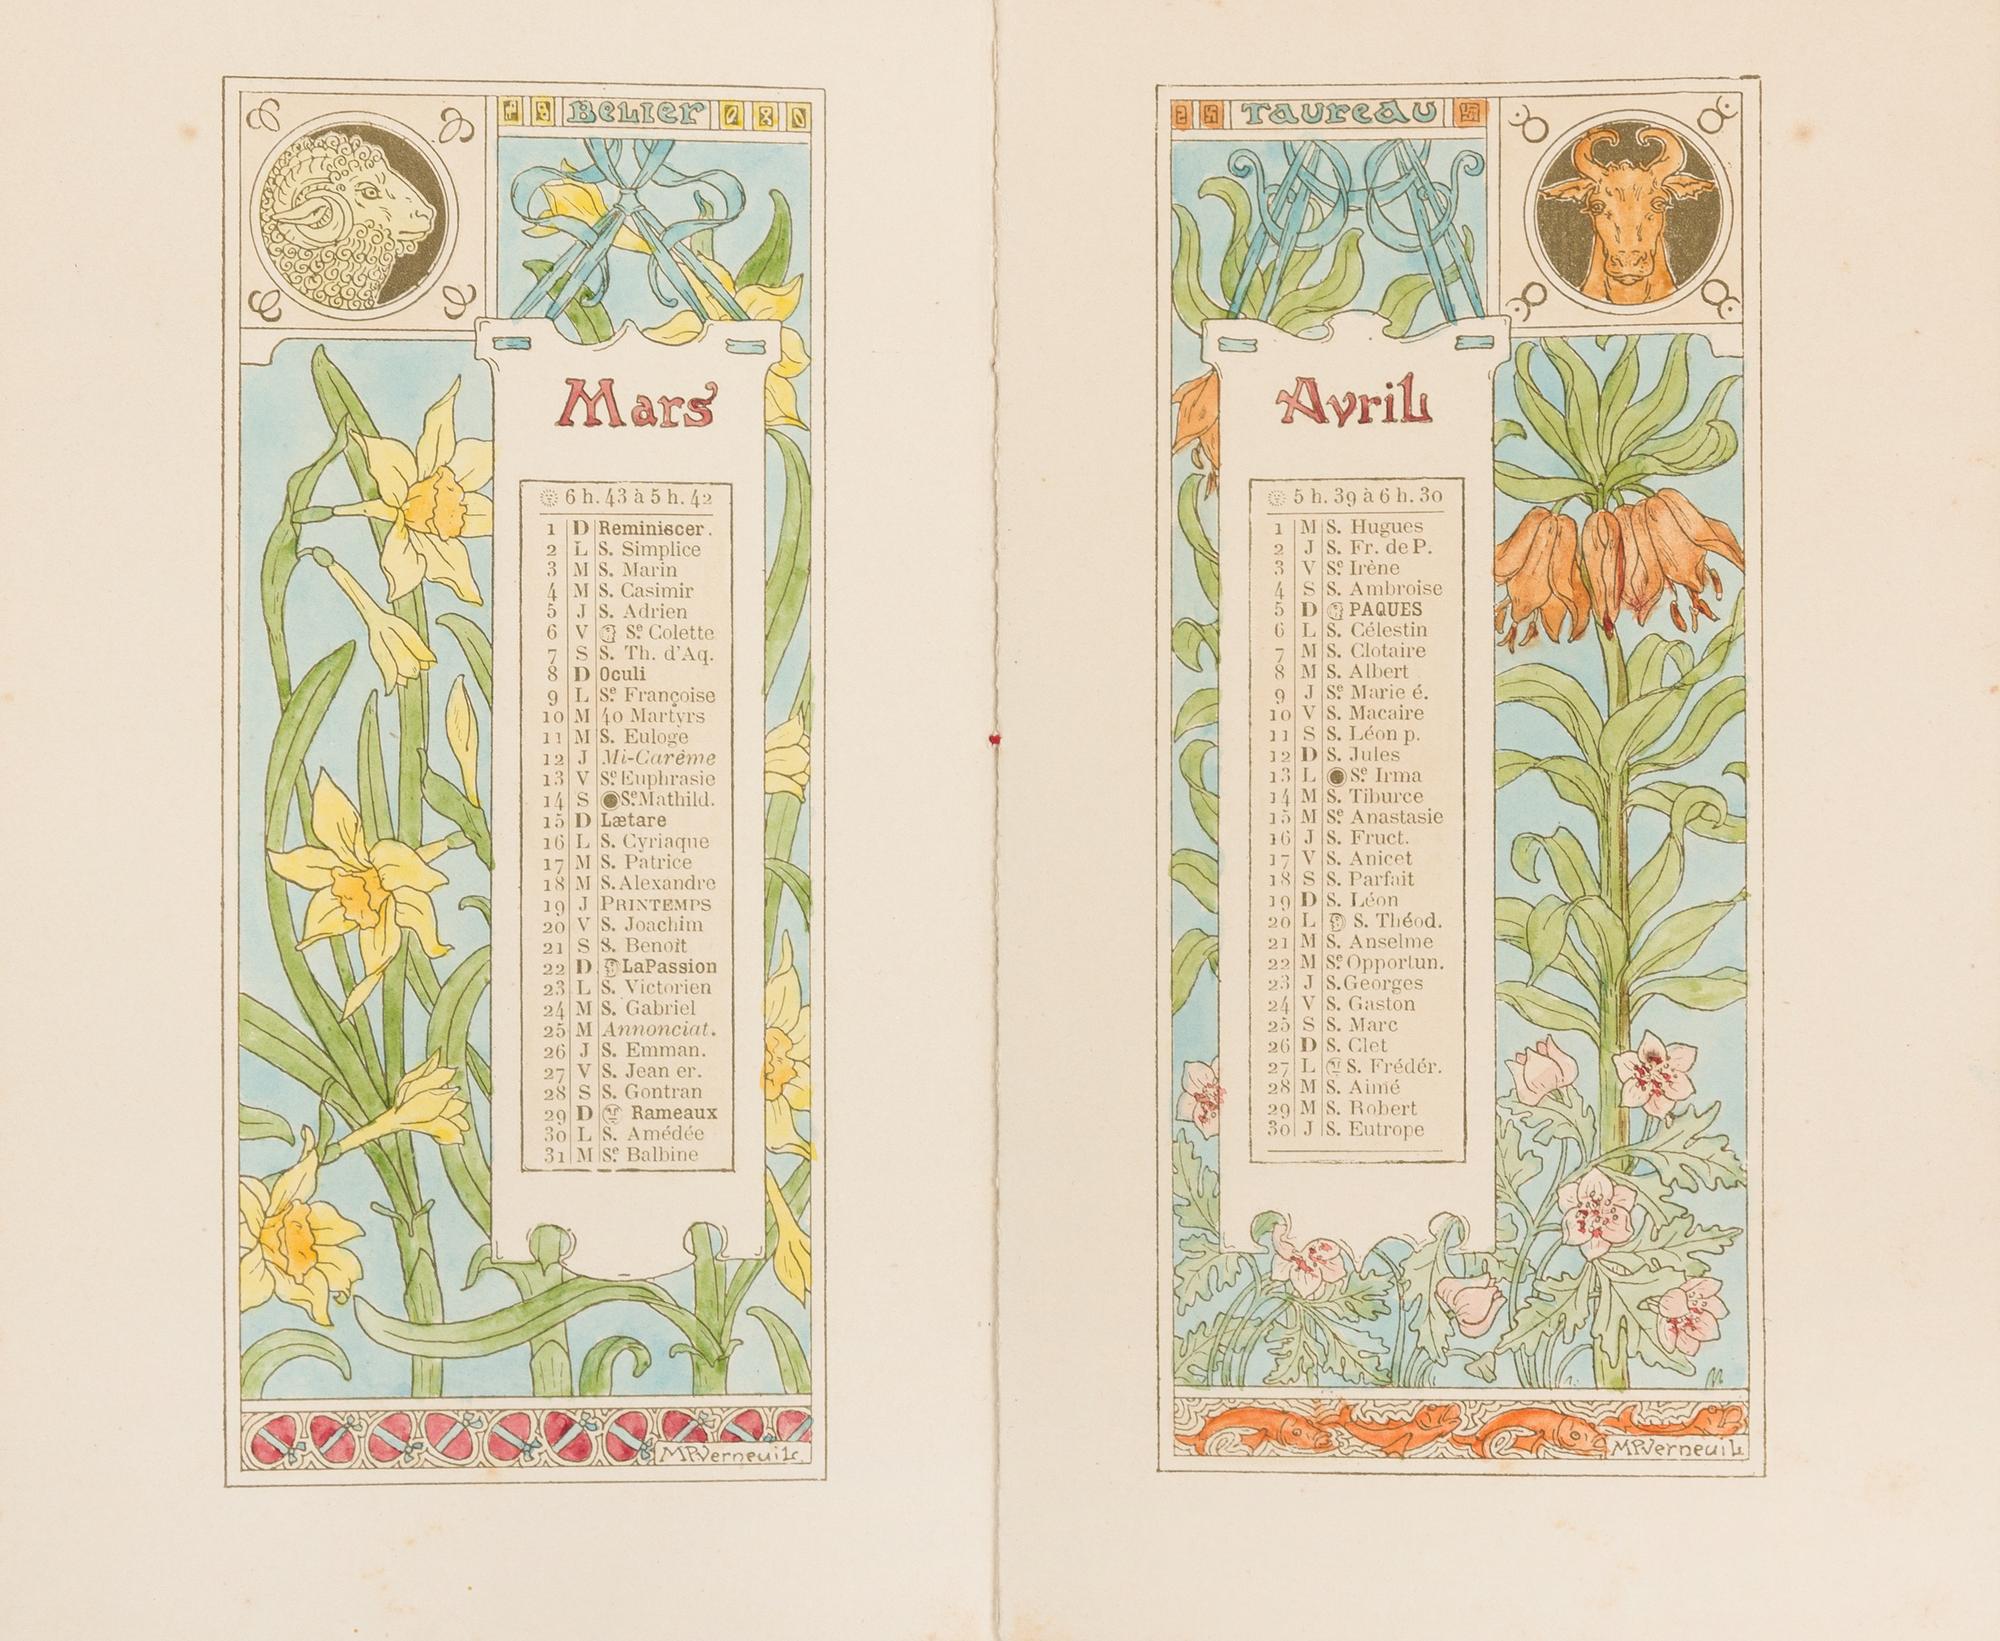 BELIER
Mars
6 h. 43 à 5 h. 42
1 D Reminiscer.
2 L S. Simplice
3 M S. Marin
4 M S. Casimir
5 J S. Adrien
6 V Sᵉ Colette
7 S S. Th. d'Aq.
8 D Oculi
9 L Sᵉ Françoise
10 M 40 Martyrs
11 M S. Euloge
12 J Mi-Carême
13 V Sᵉ Euphrasie
14 S Sᵉ Mathild.
15 D Lætare
16 L S. Cyriaque
17 M S. Patrice
18 M S. Alexandre
19 J PRINTEMPS
20 V S. Joachim
21 S S. Benoît
22 D La Passion
23 L S. Victorien
24 M S. Gabriel
25 M Annonciat.
26 J S. Emman.
27 V S. Jean er.
28 S S. Gontran
29 D Rameaux
30 L S. Amédée
31 M Sᵉ Balbine
MPVerneuil
TAUREAU
Avril
5 h. 39 à 6 h. 30
1 M S. Hugues
2 J S. Fr. de P.
3 V Sᵉ Irène
4 S S. Ambroise
5 D PAQUES
6 L S. Célestin
7 M S. Clotaire
8 M S. Albert
9 J Sᵉ Marie é.
10 V S. Macaire
11 S S. Léon p.
12 D S. Jules
13 L Sᵉ Irma
14 M S. Tiburce
15 M Sᵉ Anastasie
16 J S. Fruct.
17 V S. Anicet
18 S S. Parfait
19 D S. Léon
20 L S. Théod.
21 M S. Anselme
22 M Sᵉ Opportun.
23 J S. Georges
24 V S. Gaston
25 S S. Marc
26 D S. Clet
27 L S. Frédér.
28 M S. Aimé
29 M S. Robert
30 J S. Eutrope
M
MPVerneuil